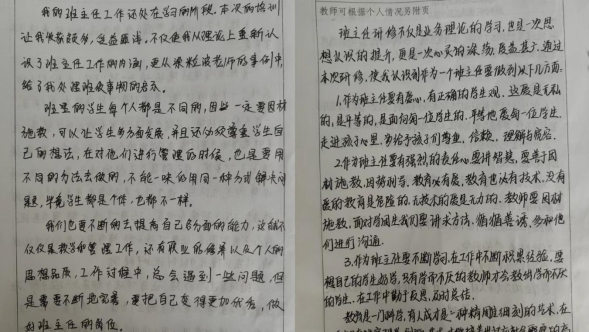 我的班主任工作还处在学习的阶段。本次的培训
让我收获颇多,受益匪浅。不仅使我从理论上重新认
识了班主任工作的内涵,更从
给了我处理班级事物的启示。
班里的学生每个人都是不同的,因此一定要因材
施教,可以让学生多方面发展,并且还必须尊重学生自
己的想法,在对他们进行管理的时候,也是要用
不同的方法去做的,不能一味的用同一种方式解决问
题,毕竟学生都是个体,也都不一样。
我们也要不断的去提高自己各方面的能力,这就不
仅仅是教学和管理工作,还有职业的修养以及个人的
思想品质,工作过程中,总会遇到一些问题,但
是需要不断地完善,要把自己变得更加优秀,做
好班主任的岗位。
教师可根据个人情况另附页
班主任研修不仅是业务理论的学习,也是一次思
想认识的提升,更是一次心灵的涤荡,受益甚多,通过
本次研修,使我认识到作为一个班主任要做到以下几方面:
1.作为班主任要有爱心,有正确的学生观,这爱是无私
的,是平等的,是面向每一位学生的。平等地爱每一位学生,
走进孩子心里,多给予孩子们尊重,信赖,理解与宽容。
2.作为班主任要有强烈的责任心要讲智慧,要善于因
材施教,因势利导,教育必有爱,教育也必有技术,没有
爱的教育是冒险的,无技术的爱是无力的。教师要因材
施教,面对学困生我们要讲求方法,循循善诱,多和他
们进行沟通。
3.作为班主任要不断学习,在工作中不断积累经验,要
想自己的学生好学,只有学而不厌的教师才会教出学而不厌
的学生,在工作中勤于反思,及时总结。
教育是一门科学,育人成才是一种精雕细刻的艺术,在